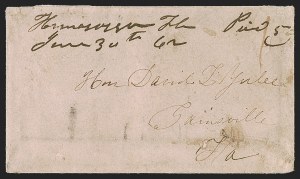 Homosassa Fla Paid 5
June 30th 62
Hon David L Yulee
Gainsville
Fa